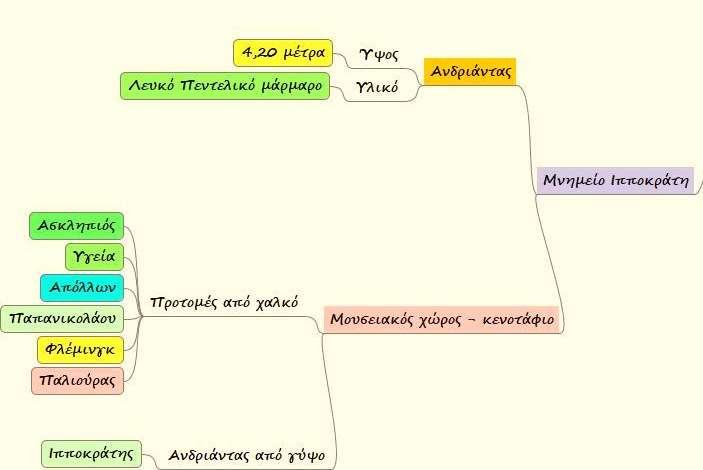 4,20 μέτρα
Ύψος
Λευκό Πεντελικό μάρμαρο
Υλικό
Ανδριάντας
Μνημείο Ιπποκράτη
Ασκληπιός
Υγεία
Απόλλων
Παπανικολάου
Φλέμινγκ
Παλιούρας
Προτομές από χαλκό
Μουσειακός χώρος - κενοτάφιο
Ιπποκράτης
Ανδριάντας από γύψο